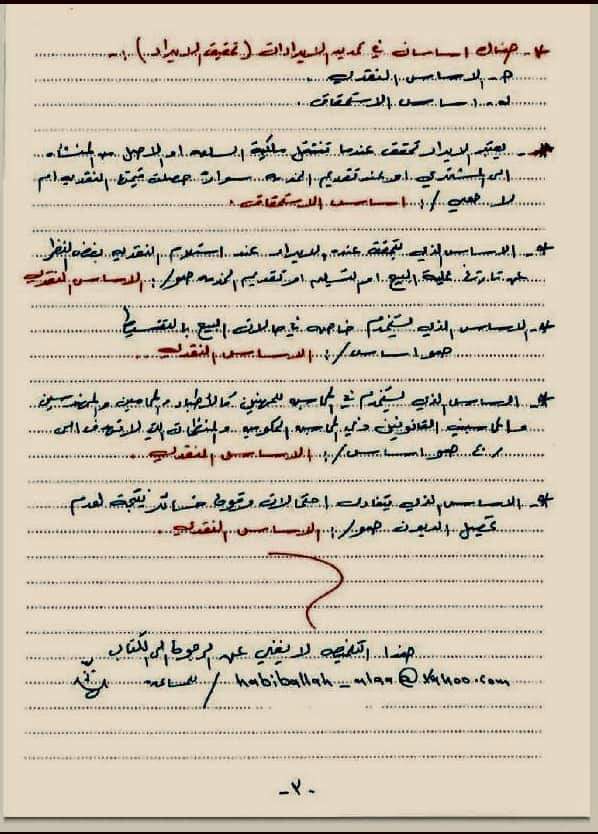 * هناك اساسان في تحديد الايرادات ( تحقيق الايراد ) :-
١- الاساس النقدي .
٢- اساس الاستحقاق .
* يعتبر الايراد تحقق عندما تنتقل ملكية السلعه او الاصل من المنشاه
الى المشتري او عند تقديم الخدمه سواء حصلت قيمتها النقديه ام
لا هي /: اساس الاستحقاق .
* الاساس الذي يتحقق عنده الايراد عند استلام النقديه بغض النظر
عن تاريخ عملية البيع او التسليم او تقديم الخدمه هو /: الاساس النقدي
* الاساس الذي يستخدم خاصه في حالات البيع بالتقسيط
هو اساس /: الاساس النقدي .
* الاساس الذي يستخدم في محاسبه المهنيين كالأطباء والمحامين والمهندسين
والمحاسبين القانونيين وفي المحاسبه الحكوميه والمنظمات التي لا تهدف الى
ربح هو اساس /: الاساس النقدي .
* الاساس الذي يتفادى احتمالات وقوع خسائر نتيجة لعدم
تحصيل الديون هو /: الاساس النقدي .
هذا التلخيص لا يغني عن الرجوع الى الكتاب
للمساعده / habiballah_alaa@yahoo.com
-٣-